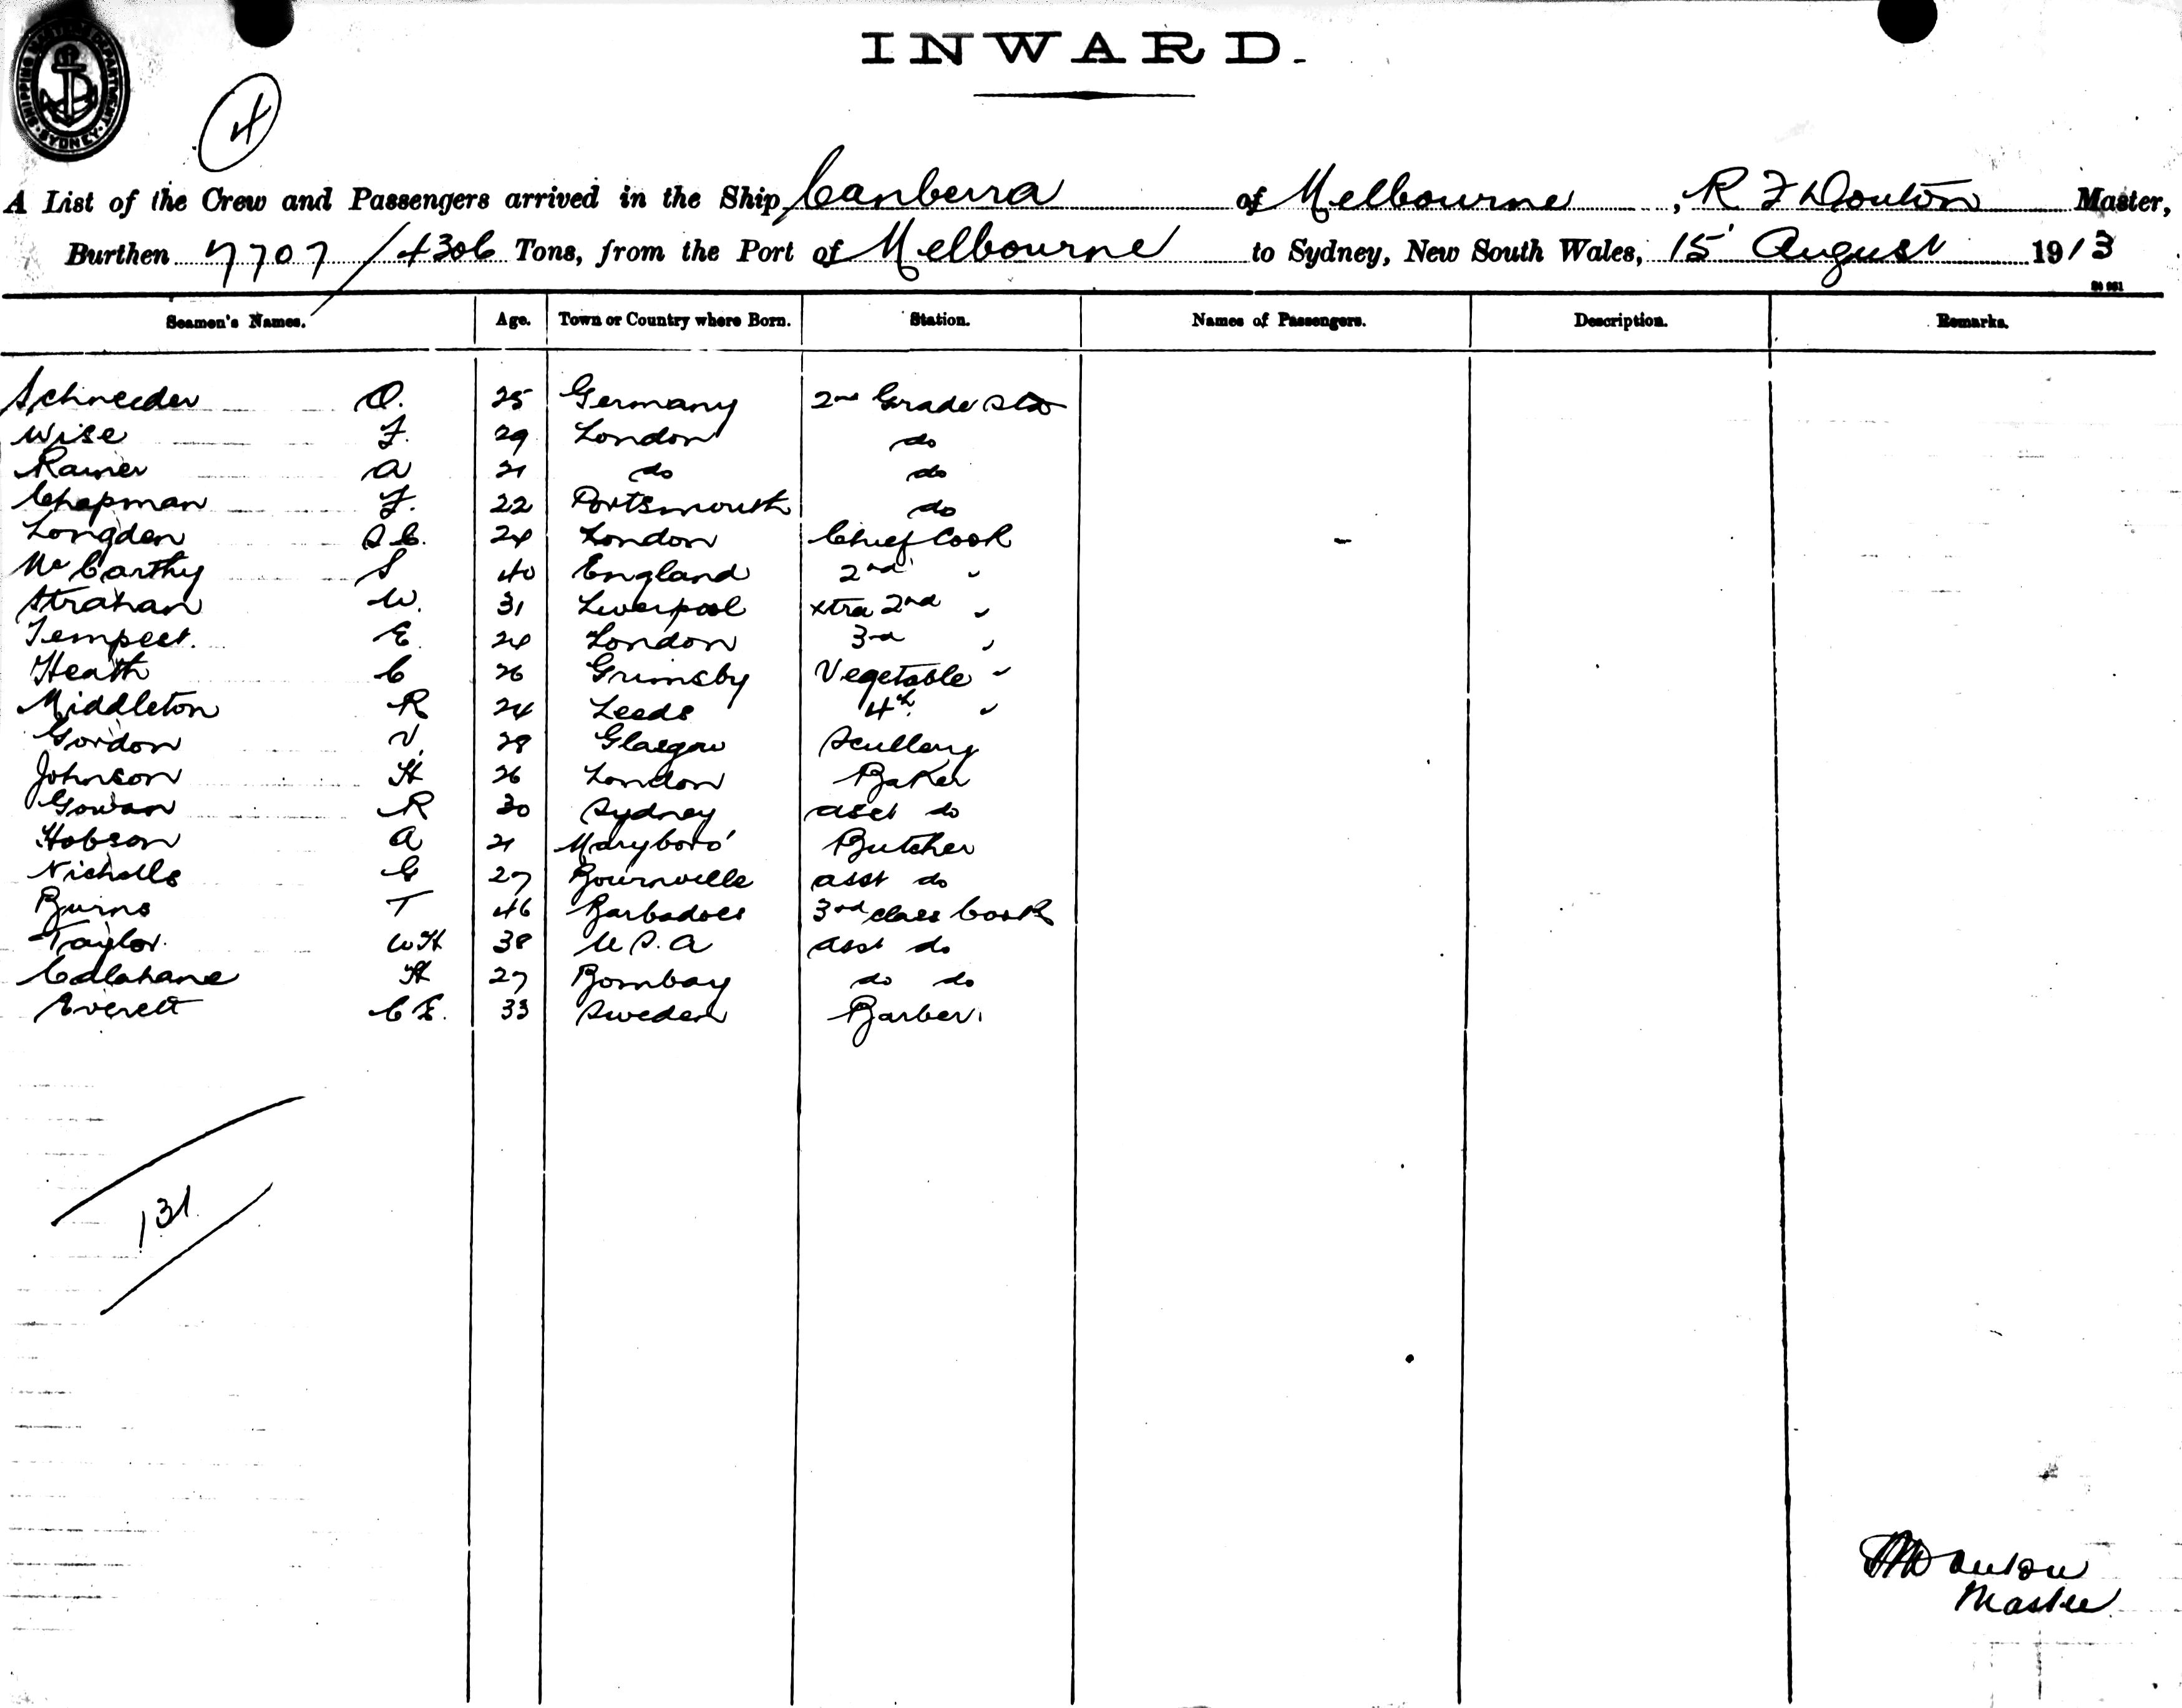 SHIPPING MASTER'S DEPARTMENT SYDNEY
4
INWARD.
A List of the Crew and Passengers arrived in the Ship Canberra of Melbourne, R. F Douton Master,
Burthen 7707/4306 Tons, from the Port of Melbourne to Sydney, New South Wales, 15 August 1913
Seamen's Names. Age. Town or Country where Born. Station. Names of Passengers. Description. Remarks.
Schneeder O. 25 Germany 2nd Grade Std
Wise F. 29 London do
Rainer A 21 do do
Chapman F. 22 Portsmouth do
Longden S C. 24 London Chief Cook
McCarthy S 40 England 2nd "
Strahan W. 31 Liverpool xtra 2nd "
Tempest. E. 24 London 3rd "
Heath C 26 Grimsby Vegetable "
Middleton R 24 Leeds 4th "
Gordon V. 28 Glasgow Scullery
Johnson H 26 London Baker
Gowan R 30 Sydney asst do
Hobson A 21 Maryboro' Butcher
Nicholls G 27 Bournville asst do
Burns T 46 Barbadoes 3rd class Cook
Taylor. W H 38 U.S.A asst do
Calahane H 27 Bombay do do
Everett C E. 33 Sweden Barber.
131
Douton
Master